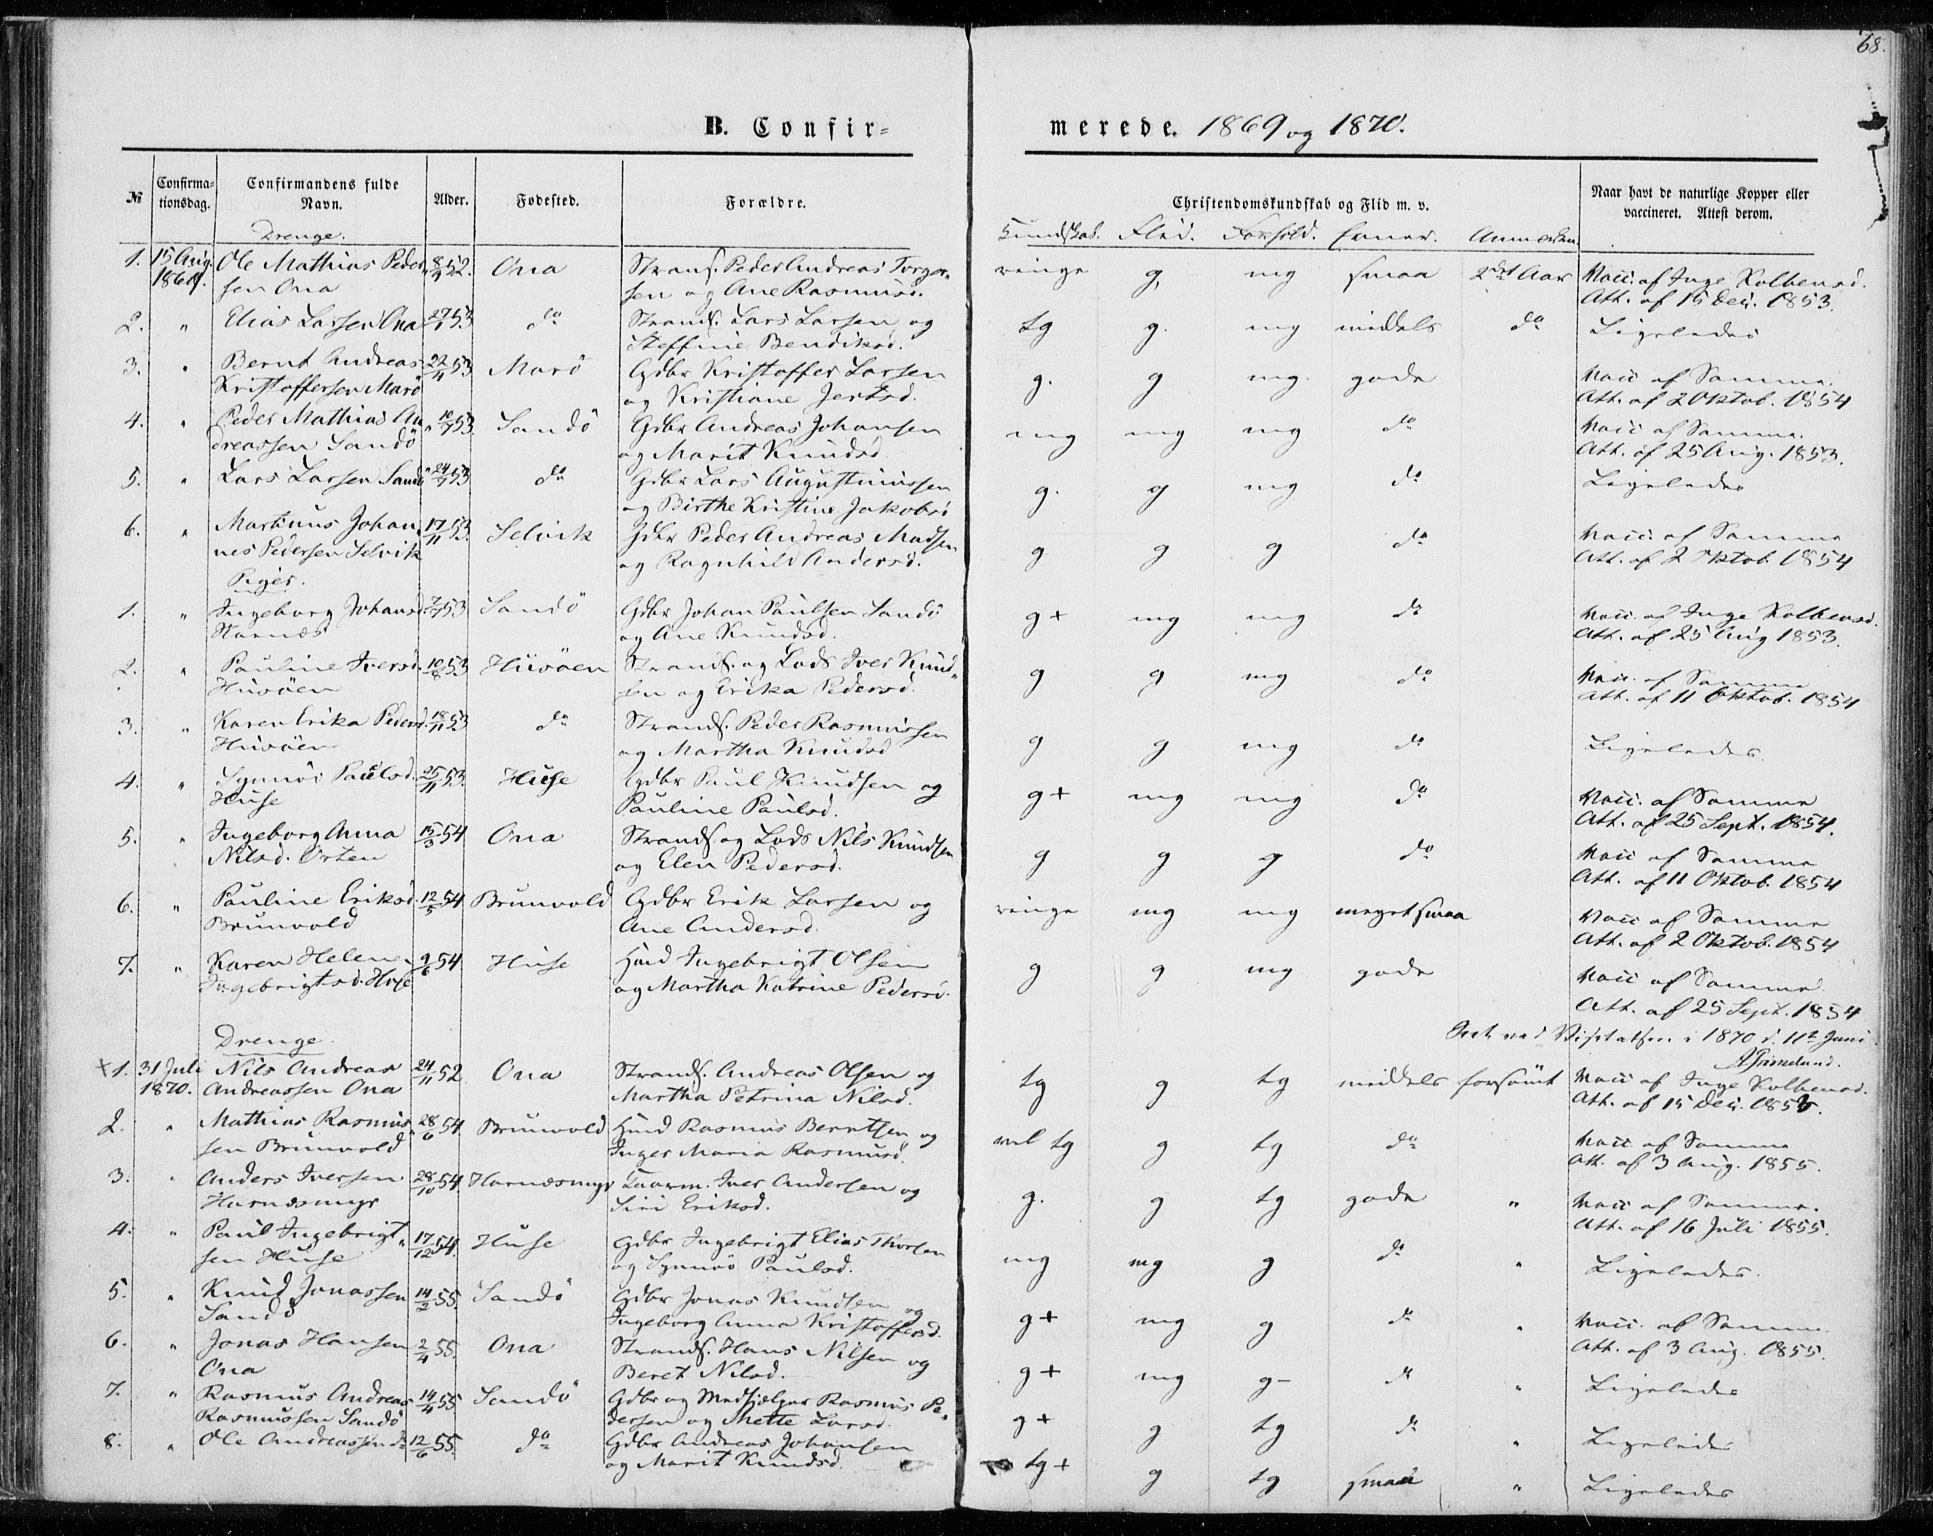 68.
B. Confirmerede. 1869 og 1870.
№ Confirmationsdag. Confirmandens fulde Navn. Alder. Fødested. Forældre. Christendomskundskab og Flid m. v. Naar havt de naturlige Kopper eller vaccineret. Attest derom.
Kundskab. Flid. Forhold. Evner. Anmerkn.
Drenge.
1. 15 Aug. 1869. Ole Mathias Pedersen Ona 8/9 52. Ona Strands. Peder Andreas Torgersen og Ane Rasmusd. ringe g. mg smaa 2det Aar Vacc. af Inge Kolbensd. Att. af 15 Dec. 1853.
2. " Elias Larsen Ona 27/1 53 do Strands. Lars Larsen og Steffine Bendiksd. tg g. mg middels do Ligeledes
3. " Bernt Andreas Kristoffersen Marö 22/4 53 Marö Gdbr Kristoffer Larsen og Kristiane Jertsd. g. g mg. gode Vacc af Samme. Att. af 2 Oktob. 1854
4. " Peder Mathias Andreassen Sandö 10/7 53 Sandö Gdbr Andreas Johansen og Marit Knudsd. mg mg mg do Vacc af Samme. Att. af 25 Aug. 1853.
5. " Lars Larsen Sandö 24/7 53 do Gdbr Lars Augustinussen og Birthe Kristine Jakobsd g. g mg do Ligeledes
6. " Martinus Johannes Pedersen Selvik 17/11 53. Selvik Gdbr Peder Andreas Madsen og Ragnhild Andersd. g g g do Vacc. af Samme Att. af 2 Oktob. 1854
Piger.
1. " Ingeborg Johansd. 7/7 53 Sandö Gdbr Johan Paulsen Sandö og Ane Knudsd. g+ mg mg do Vacc. af Inge Kolbensd. Att. af 25 Aug 1853.
2. " Pauline Iversd. Husöen 10/8 53 Husöen Strands. og Lods Iver Knudsen og Erika Pedersd. g g mg do Vacc. af Samme Att. af 11 Oktob. 1854
3. " Karen Erika Pedersd. Husöen 18/11 53 do Strands. Peder Rasmussen og Martha Knudsd g g mg do Ligeledes.
4. " Synnöv Paulsd. Huse 25/11 53. Huse Gdbr Paul Knudsen og Pauline Paulsd. g+ mg mg do Vacc. af Samme Att. af 25 Sept. 1854.
5. " Ingeborg Anna Nilsd. Orten 15/3 54 Ona Strands. og Lods Nils Knudsen og Elen Pedersd. g g g do Vacc af Samme Att. af 11 Oktob. 1854
6. " Pauline Eriksd. Brunvold 12/5 54 Brunvold Gdbr Erik Larsen og Ane Andersd. ringe mg mg meget smaa Vacc af Samme Att. af 2 Oktob. 1854
7. " Karen Helene Ingebrigtsd. Huse 9/6 54 Huse Hmd Ingebrigt Olsen og Martha Katrine Pedersd. g g mg gode Vacc af Samme Att. af 25 Sept. 1854
ved Visitatsen i 1870 d. 11te Juni
A Grimelund.
Drenge
+1. 31 Juli 1870. Nils Andreas Andreassen Ona 24/11 52 Ona Strands. Andreas Olsen og Martha Petrina Nilsd. tg g tg middels forsömt Vacc af Inge Kolbensd. Att. af 15 Dec. 1853.
2. " Mathias Rasmussen Brunvold 28/6 54 Brunvold Hmd Rasmus Berntsen og Inger Maria Rasmusd. vel tg g tg do Vacc af Samme Att. af 3 Aug. 1855.
3. " Anders Iversen Harnæsmyr 28/10 54 Harnæsmyr Iver Andersen og Siri Eriksd. g. g tg gode " Vacc af Samme. Att. af 16 Juli 1855.
4. " Paul Ingebrigtsen Huse 17/12 54. Huse Gdbr Ingebrigt Elias Thorsen og Synnöv Paulsd. mg mg g do " Ligeledes.
5. " Knud Jonassen Sandö 14/2 55. Sandö Gdbr Jonas Knudsen og Ingeborg Anna Kristoffersd. g+ mg g do " Vacc. af Samme. Att. af 3 Aug. 1855.
6. " Jonas Hansen Ona 2/4 55. Ona Strands. Hans Nilsen og Beret Nilsd. g+ mg g- do " Ligeledes
7. " Rasmus Andreas Rasmussen Sandö 14/4 55 Sandö Gdbr og Medhjelper Rasmus Pedersen og Mette Larsd. g+ g tg do " Ligeledes
8. " Ole Andreassen do 12/6 55. do Gdbr Andreas Johansen og Marit Knudsd. tg+ g tg smaa " Ligeledes